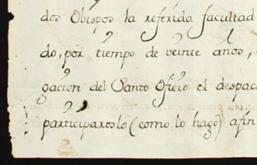 dos Obispos la referida facultad
do, por tiempo de veinte años,
gacion del Santo Oficio el despac
participaroslo (como lo hago) afin